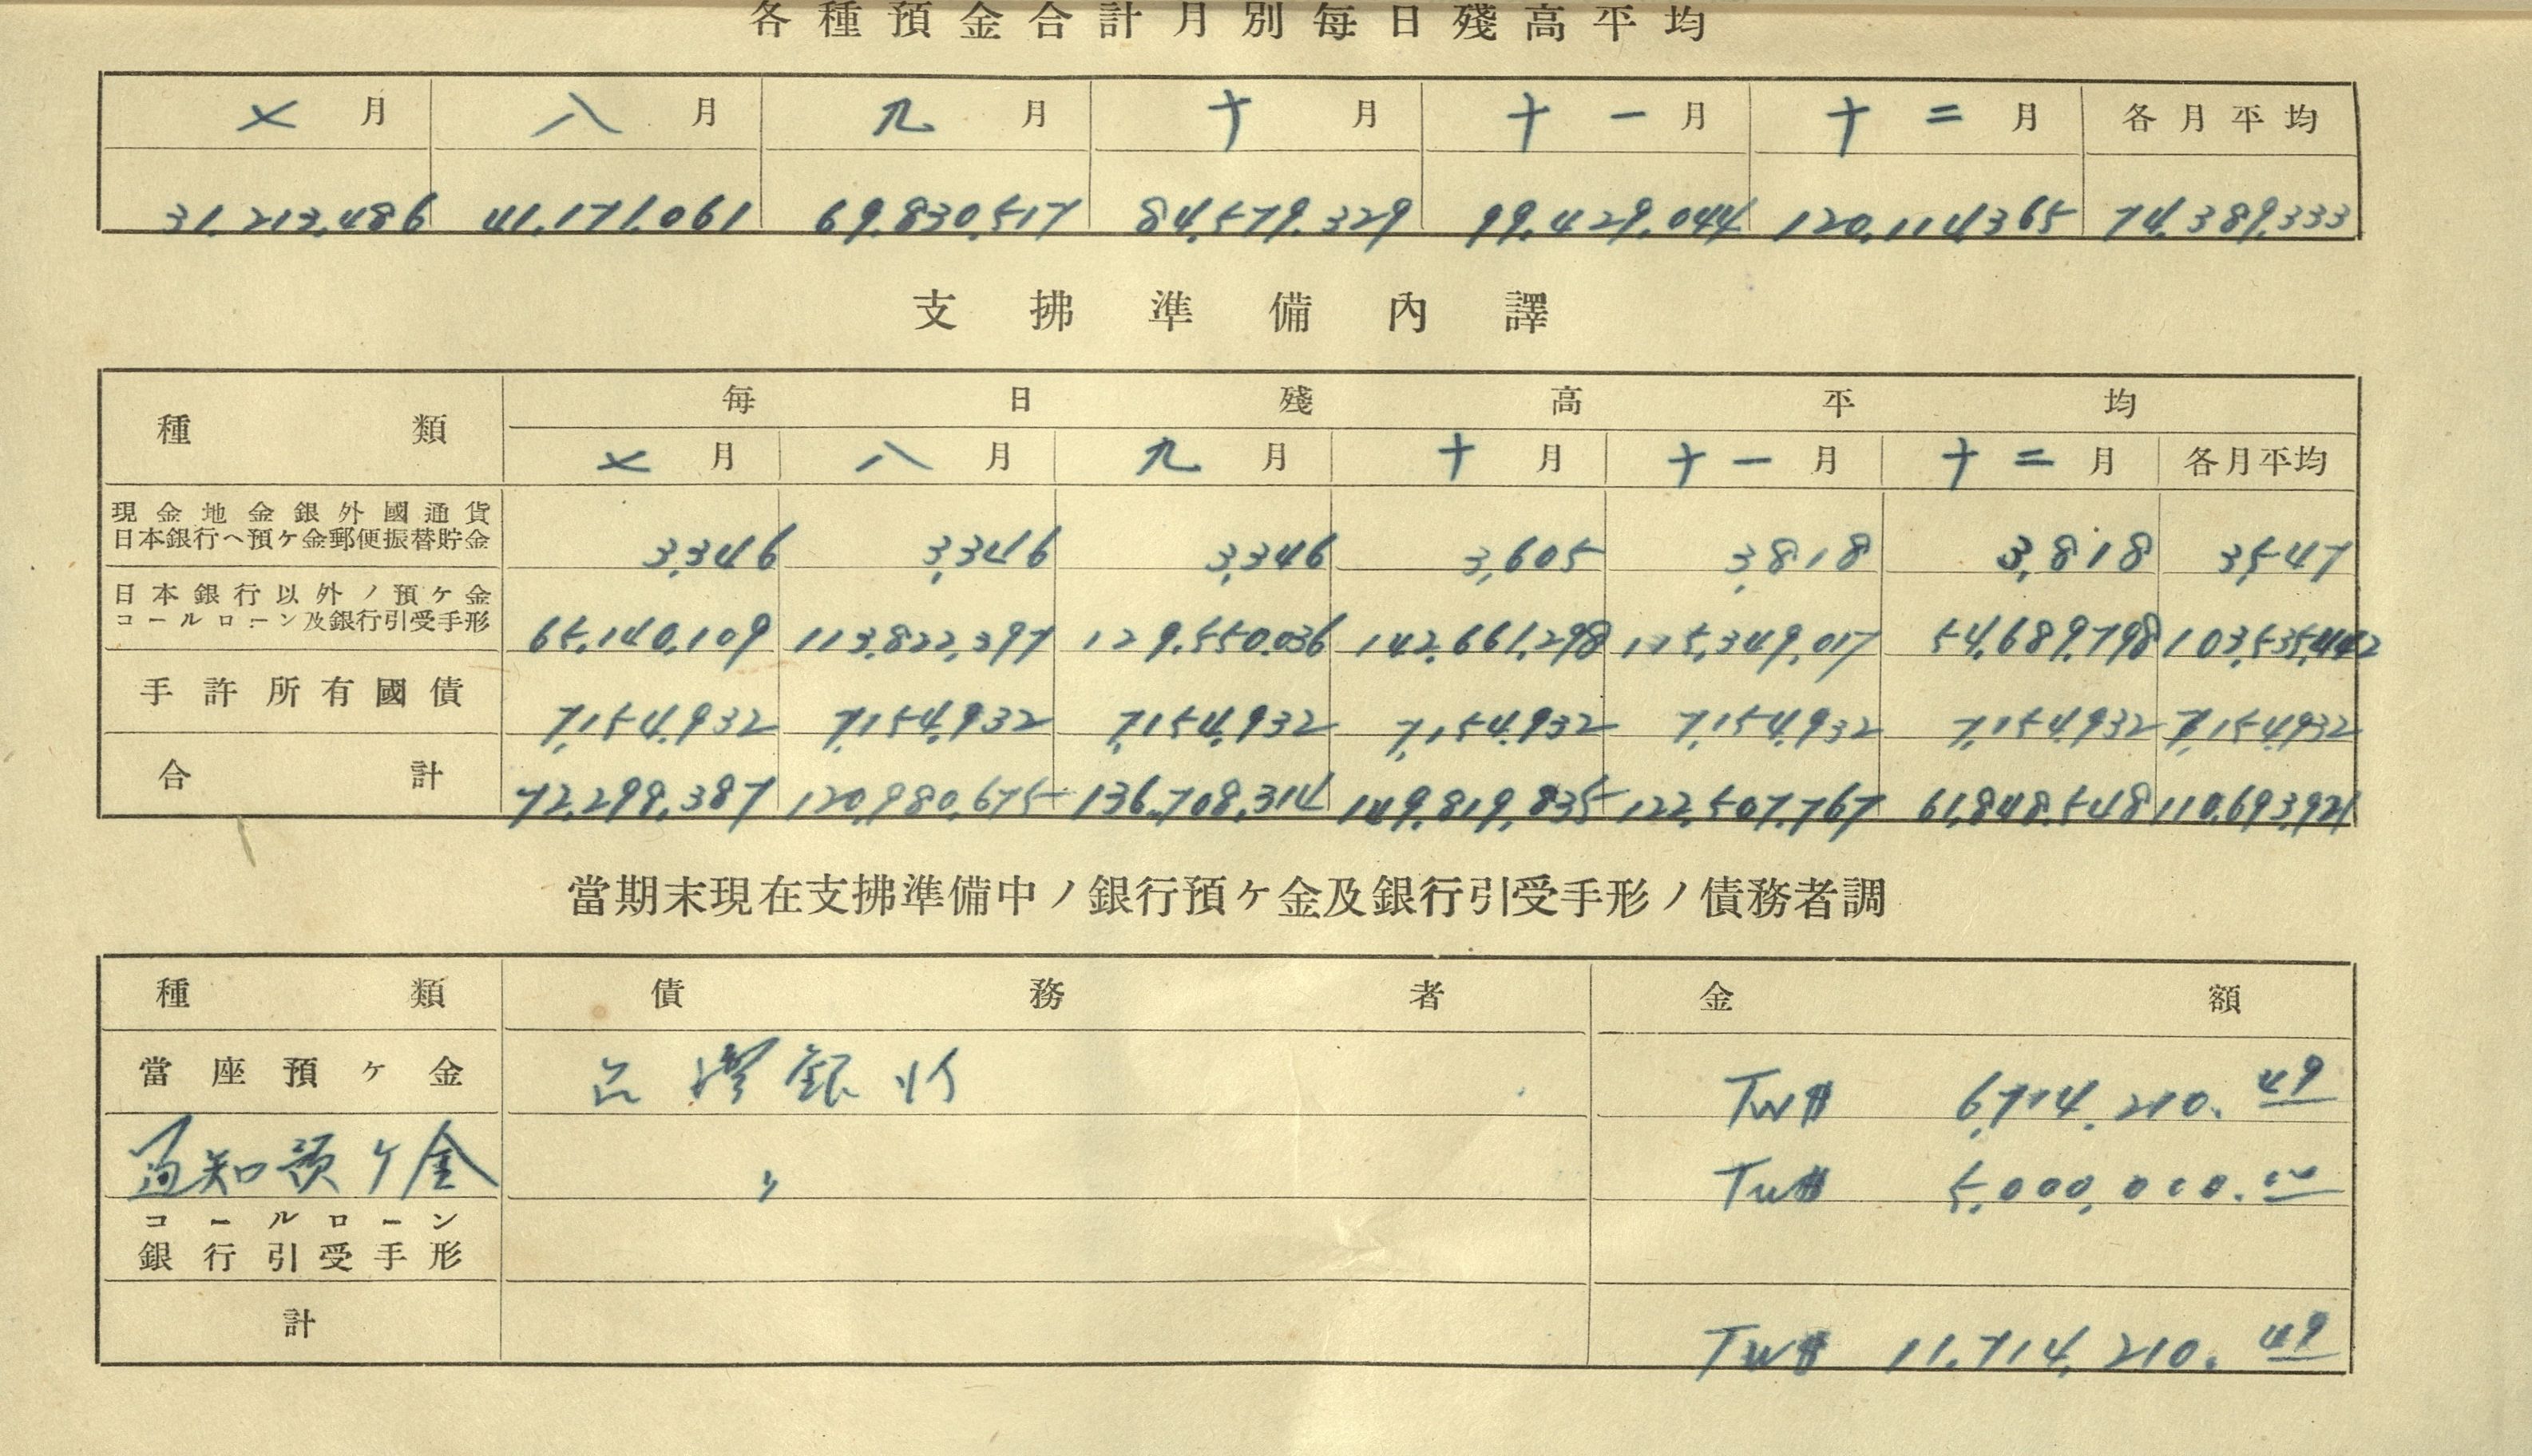 各種預金合計月別毎日殘高平均
七月 八月 九月 十月 十一月 十二月 各月平均
31,213,486 41,171,061 69,830,517 84,579,329 99,429,044 120,114,365 74,389,333
支拂準備內譯
種類 毎日殘高平均
七月 八月 九月 十月 十一月 十二月 各月平均
現金地金銀外國通貨
日本銀行ヘ預ケ金郵便振替貯金 3,346 3,346 3,346 3,605 3,818 3,818 3,547
日本銀行以外ノ預ケ金
コールローン及銀行引受手形 65,140,109 113,822,397 129,550,036 142,661,298 115,349,017 54,689,798 103,535,442
手許所有國債 7,154,932 7,154,932 7,154,932 7,154,932 7,154,932 7,154,932 7,154,932
合計 72,298,387 120,980,675 136,708,314 149,819,835 122,507,767 61,848,548 110,693,921
當期末現在支拂準備中ノ銀行預ケ金及銀行引受手形ノ債務者調
種類 債務者 金額
當座預ケ金 台灣銀行 TW$ 6,714,210.49
通知預ケ金 〃 TW$ 5,000,000.00
コールローン
銀行引受手形
計 TW$ 11,714,210.49